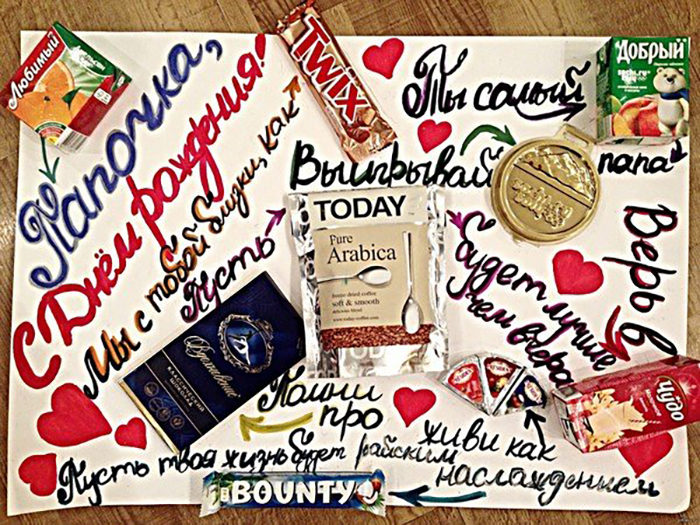 Любимый
Папочка,
С Днём рождения!
Мы с тобой близки, как
TWIX
Ты самый
Добрый
папа
Выигрывай
Пусть
TODAY
Pure
Arabica
freeze dried coffee
soft & smooth
будет лучше
чем вчера
Верь в
Чудо
Вдохновение
КЛАССИЧЕСКИЙ
ШОКОЛАД
Помни
про
живи как
наслаждением
Пусть твоя жизнь будет райским
BOUNTY